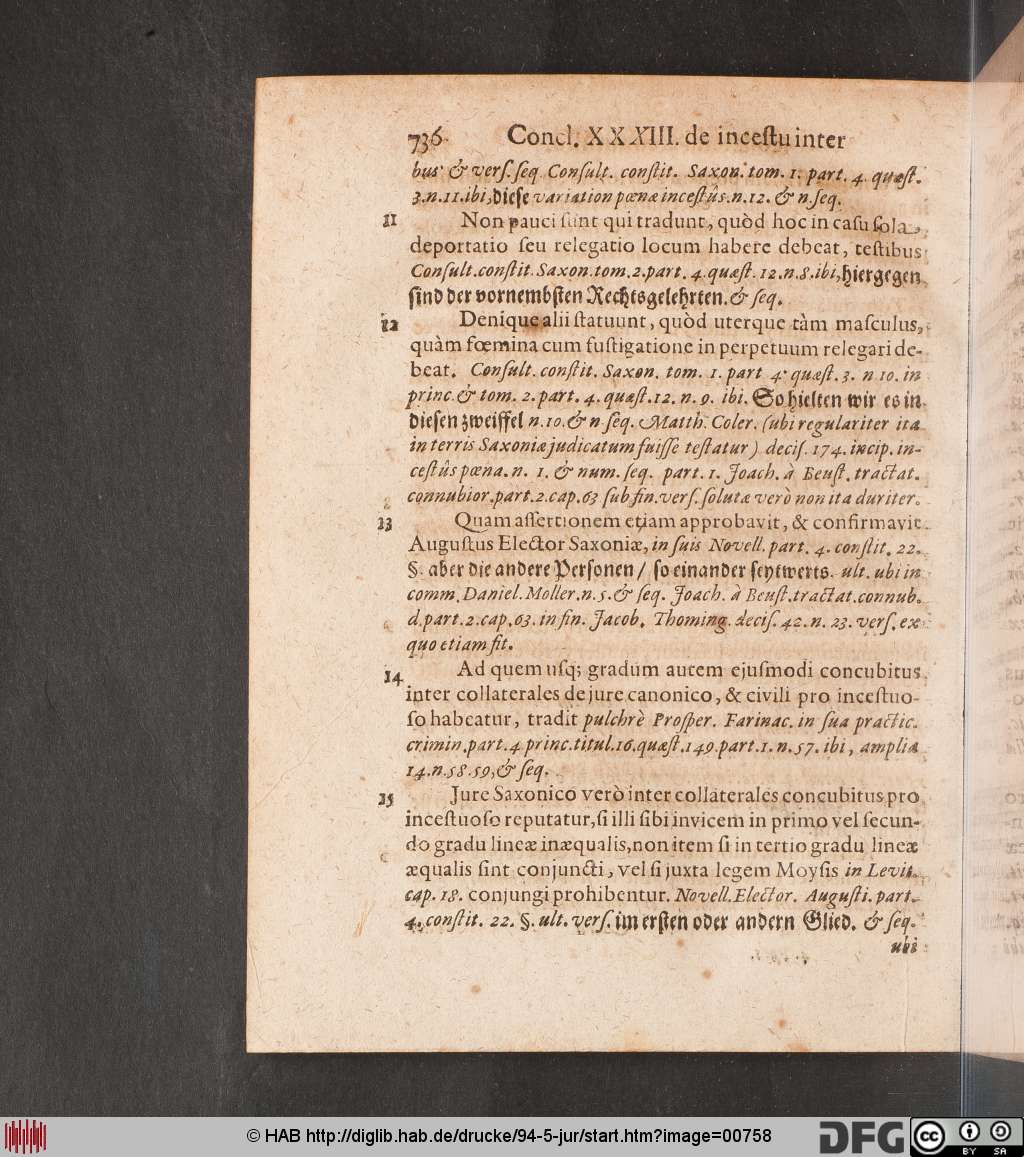 736 Concl. XXXIII. de incestu inter
bus & vers. seq. Consult. constit. Saxon. tom. 1. part. 4. quæst.
3. n. 11. ibi, diese variation pœnæ incestûs. n. 12. & n. seq.
11 Non pauci sunt qui tradunt, quòd hoc in casu sola
deportatio seu relegatio locum habere debeat, testibus
Consult. constit. Saxon. tom. 2. part. 4. quæst. 12. n. 8. ibi, hiergegen
sind der vornembsten Rechtsgelehrten. & seq.
12 Denique alii statuunt, quòd uterque tàm masculus,
quàm fœmina cum fustigatione in perpetuum relegari de-
beat. Consult. constit. Saxon. tom. 1. part 4. quæst. 3. n. 10. in
princ. & tom. 2. part. 4. quæst. 12. n. 9. ibi. So hielten wir es in
diesen zweiffel n. 10. & n seq. Matth. Coler. (ubi regulariter ita
in terris Saxoniæ judicatum fuisse testatur) decis. 174. incip. in-
cestûs pœna. n. 1. & num. seq. part. 1. Joach. à Beust. tractat.
connubior. part. 2. cap. 63 sub fin. vers. solutæ verò non ita duriter.
13 Quam assertionem etiam approbavit, & confirmavit
Augustus Elector Saxoniæ, in suis Novell. part. 4. constit. 22.
§. aber die andere Personen / so einander seytwerts. ult. ubi in
comm. Daniel. Moller. n. 5. & seq. Joach. à Beust. tractat. connub.
d. part. 2. cap. 63. in fin. Jacob. Thoming. decis. 42. n. 23. vers. ex
quo etiam fit.
14 Ad quem usq; gradum autem ejusmodi concubitus
inter collaterales de jure canonico, & civili pro incestuo-
so habeatur, tradit pulchrè Prosper. Farinac. in sua practic.
crimin. part. 4 princ. titul. 16. quæst. 149. part. 1. n. 57. ibi, amplia
14. n. 58. 59, & seq.
15 Jure Saxonico verò inter collaterales concubitus pro
incestuoso reputatur, si illi sibi invicem in primo vel secun-
do gradu lineæ inæqualis, non item si in tertio gradu lineæ
æqualis sint conjuncti, vel si juxta legem Moysis in Levit.
cap. 18. conjungi prohibentur. Novell. Elector. Augusti. part.
4. constit. 22. §. ult. vers. im ersten oder andern Glied. & seq.
ubi
© HAB http://diglib.hab.de/drucke/94-5-jur/start.htm?image=00758
DFG cc BY SA